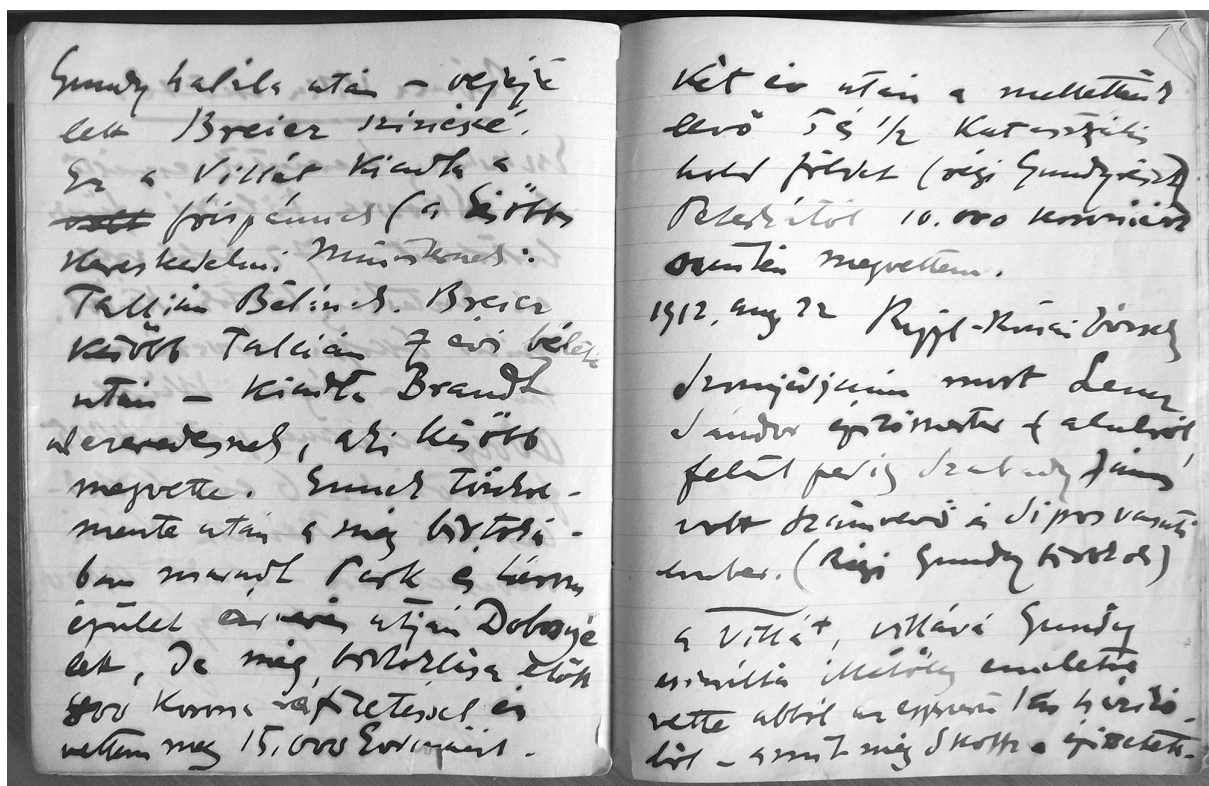 Gundy halála után – vejéjé
lett Breier színészé.
Ez a Villát kiadta a
főispánnak (a később
Kereskedelmi Miniszternek:
Tallián Bélának. Breier
később Tallián 7 évi bérlete
után – kiadta Brandt
alezredesnek, aki később
megvette. Ennek
után a még birtoká-
ban maradt Park és három
épület utján Dobosyé
lett, De még birtoklása előtt
400 Korona ráfizetéssel én
vettem meg 15.000 Koronáért.
Két év után a mellettünk
levő 5 és 1/2 Katasztrális
hold földet (régi Gundyrészt)
10.000 koronáért
szintén megvettem.
1912. aug 22 Rippl-Rónai József
Szomjédjaim most Lenz
Sándor építőmester alulról
felül pedig Szabady János
volt számvevő és vasuti
ember. (Régi Gundy birtokok)
a Villát, villává Gundy
csinálta illetőleg emeletre
vette abból az egyszerű kis házikó-
ból – amit még építtetett.